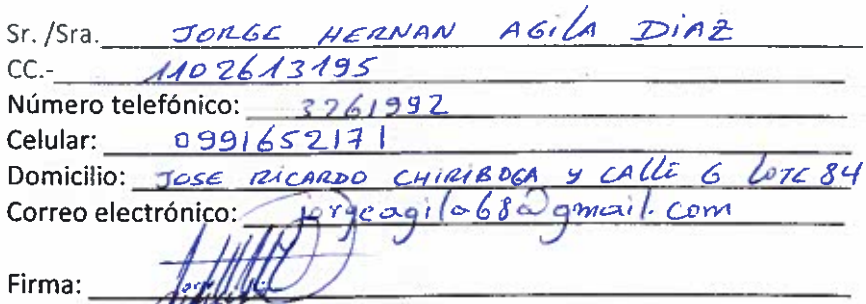 Sr. /Sra. JORGE HERNAN AGILA DIAZ
CC.- 1102613195
Número telefónico: 3261992
Celular: 0991652171
Domicilio: JOSE RICARDO CHIRIBOGA y CALLE G LOTE 84
Correo electrónico: jorgeagila68@gmail.com
Firma: